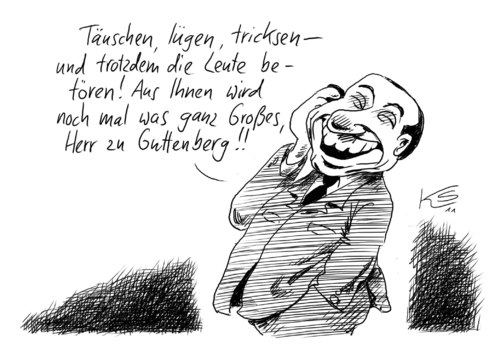 Täuschen, lügen, tricksen—
und trotzdem die Leute be-
tören! Aus Ihnen wird
noch mal was ganz Großes,
Herr zu Guttenberg!!
KS
11